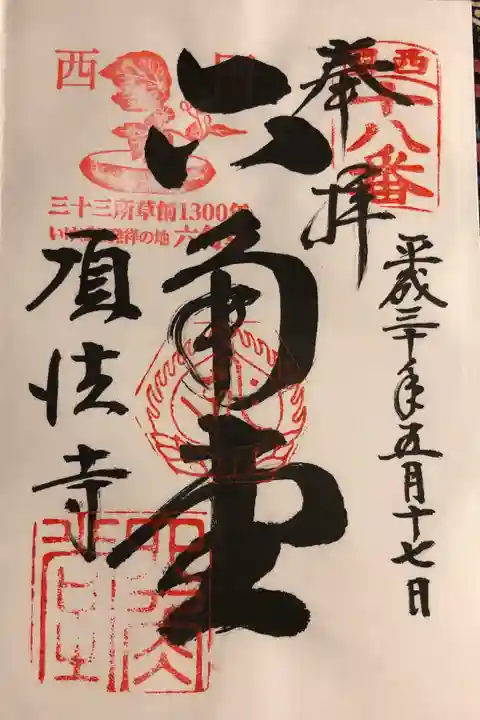 西国
十八番
奉拝
平成三十年五月十七日
六角堂
西国
三十三所草創1300年
いけばな発祥の地 六角堂
頂法寺